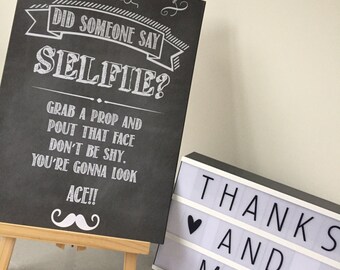 DID SOMEONE SAY
SELFIE?
GRAB A PROP AND
POUT THAT FACE
DON'T BE SHY.
YOU'RE GONNA LOOK
ACE!!
THANKS
♥ AND